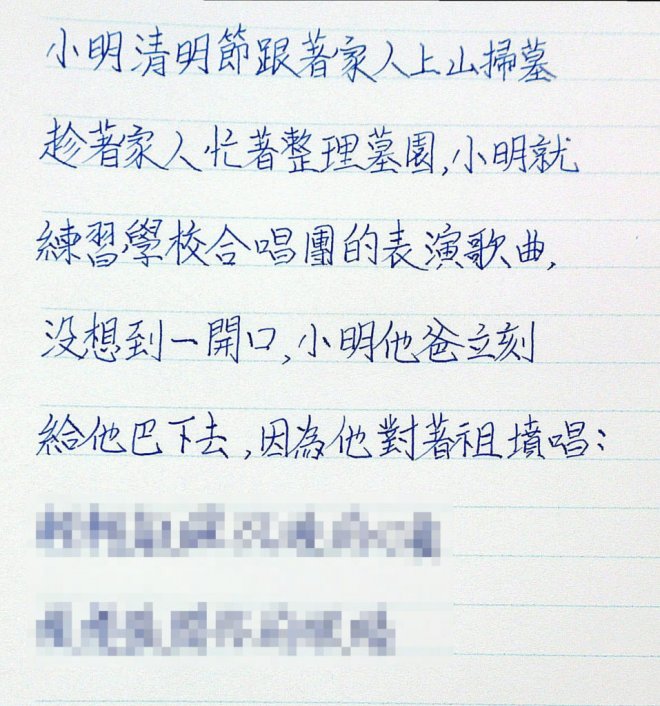 小明清明節跟著家人上山掃墓
趁著家人忙著整理墓園,小明就
練習學校合唱團的表演歌曲,
沒想到一開口,小明他爸立刻
給他巴下去,因為他對著祖墳唱: